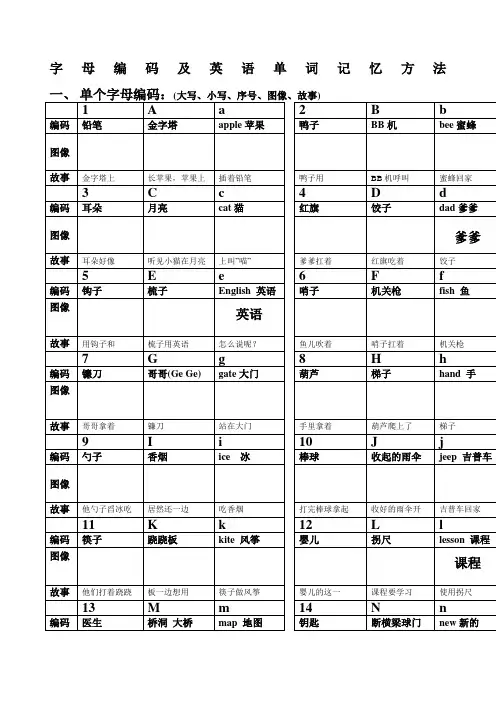 字 母 编 码 及 英 语 单 词 记 忆 方 法
一、 单个字母编码：(大写、小写、序号、图像、故事)
1 A a 2 B b
编码 铅笔 金字塔 apple 苹果 鸭子 BB机 bee 蜜蜂
图像
故事 金字塔上 长苹果，苹果上 插着铅笔 鸭子用 BB机呼叫 蜜蜂回家
3 C c 4 D d
编码 耳朵 月亮 cat 猫 红旗 饺子 dad 爹爹
图像 爹爹
故事 耳朵好像 听见小猫在月亮 上叫"喵" 爹爹扛着 红旗吃着 饺子
5 E e 6 F f
编码 钩子 梳子 English 英语 哨子 机关枪 fish 鱼
图像 英语
故事 用钩子和 梳子用英语 怎么说呢？ 鱼儿吹着 哨子扛着 机关枪
7 G g 8 H h
编码 镰刀 哥哥(Ge Ge) gate 大门 葫芦 梯子 hand 手
图像
故事 哥哥拿着 镰刀 站在大门 手里拿着 葫芦爬上了 梯子
9 I i 10 J j
编码 勺子 香烟 ice 冰 棒球 收起的雨伞 jeep 吉普车
图像
故事 他勺子舀冰吃 居然还一边 吃香烟 打完棒球拿起 收好的雨伞开 吉普车回家
11 K k 12 L l
编码 筷子 跷跷板 kite 风筝 婴儿 拐尺 lesson 课程
图像 课程
故事 他们打着跷跷 板一边想用 筷子做风筝 婴儿的这一 课程要学习 使用拐尺
13 M m 14 N n
编码 医生 桥洞 大桥 map 地图 钥匙 断横梁球门 new 新的